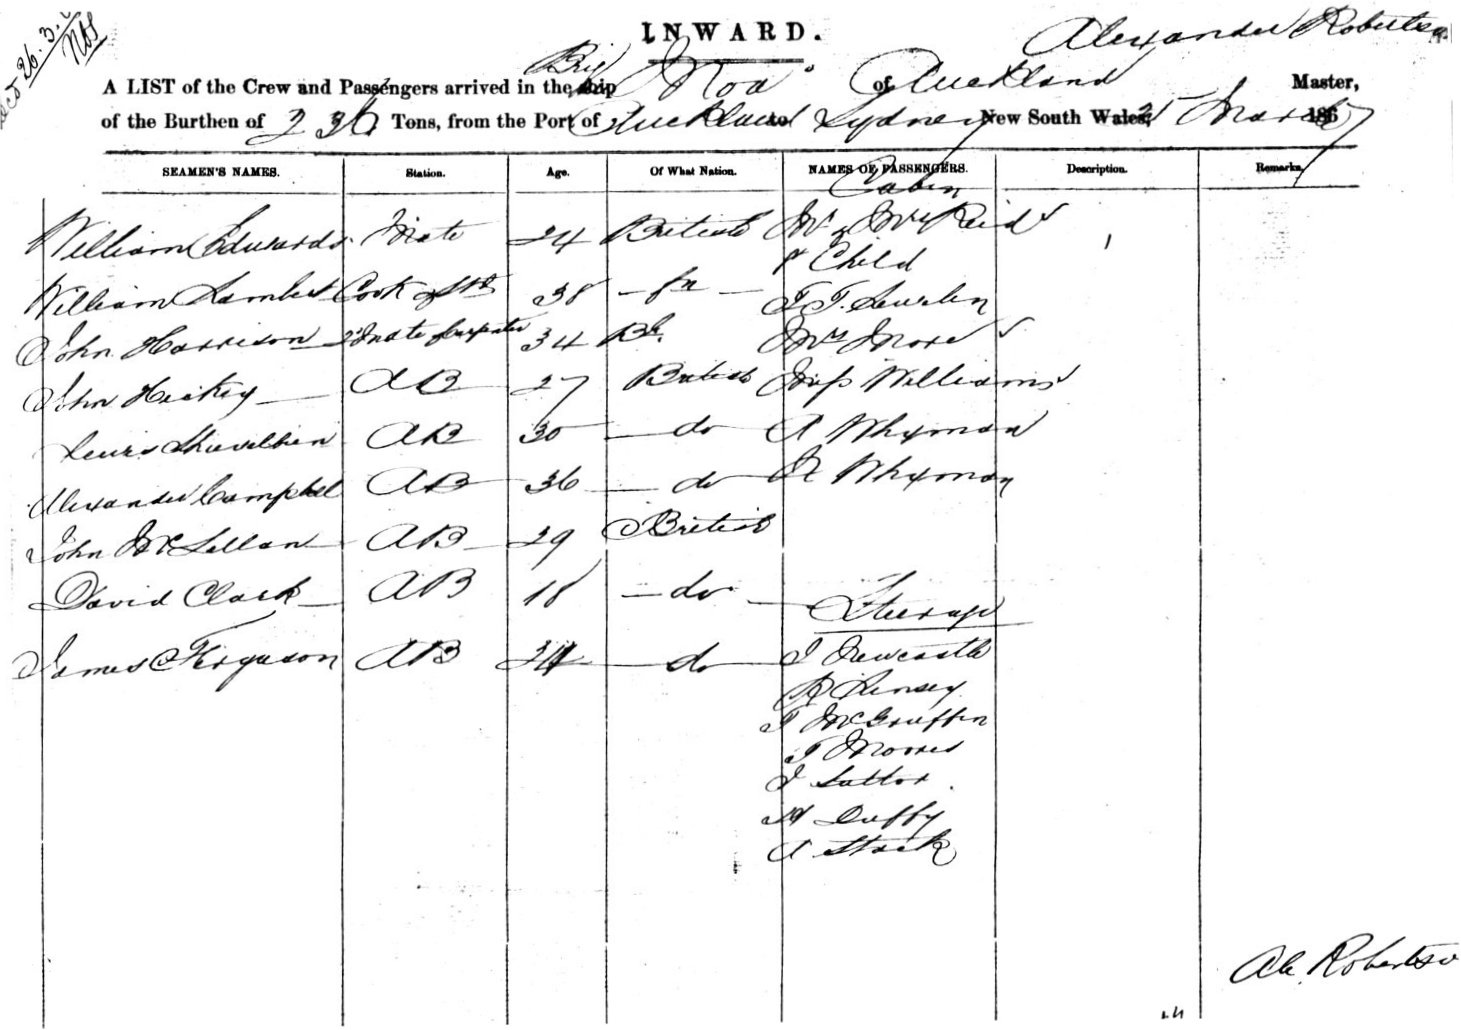 Recd 26.3.
INWARD.
Alexander Robertson
A LIST of the Crew and Passengers arrived in the ship Brig Moa of Auckland Master,
of the Burthen of 236 Tons, from the Port of Auckland to Sydney New South Wales, 25 March 1867
SEAMEN'S NAMES. Station. Age. Of What Nation. NAMES OF PASSENGERS. Description. Remarks,
Cabin
William Edwards Mate 24 British Mr & Mrs Reid
& Child
William Lambert Cook & Std 38 T. T.
John Harrison 2d Mate Carpenter 34 Bh. Mrs More
John Hickey AB 27 British Miss Williams
Lewis AB 30 do A Whyman
Alexander Campbel AB 36 do Whyman
John McLellan AB 29 British
David Clark AB 18 do
Steerage
James Ferguson AB do J Newcastle
R Linsey
McGruffin
T Moores
J Suttor
Duffy
A Stack
Alx Robertson